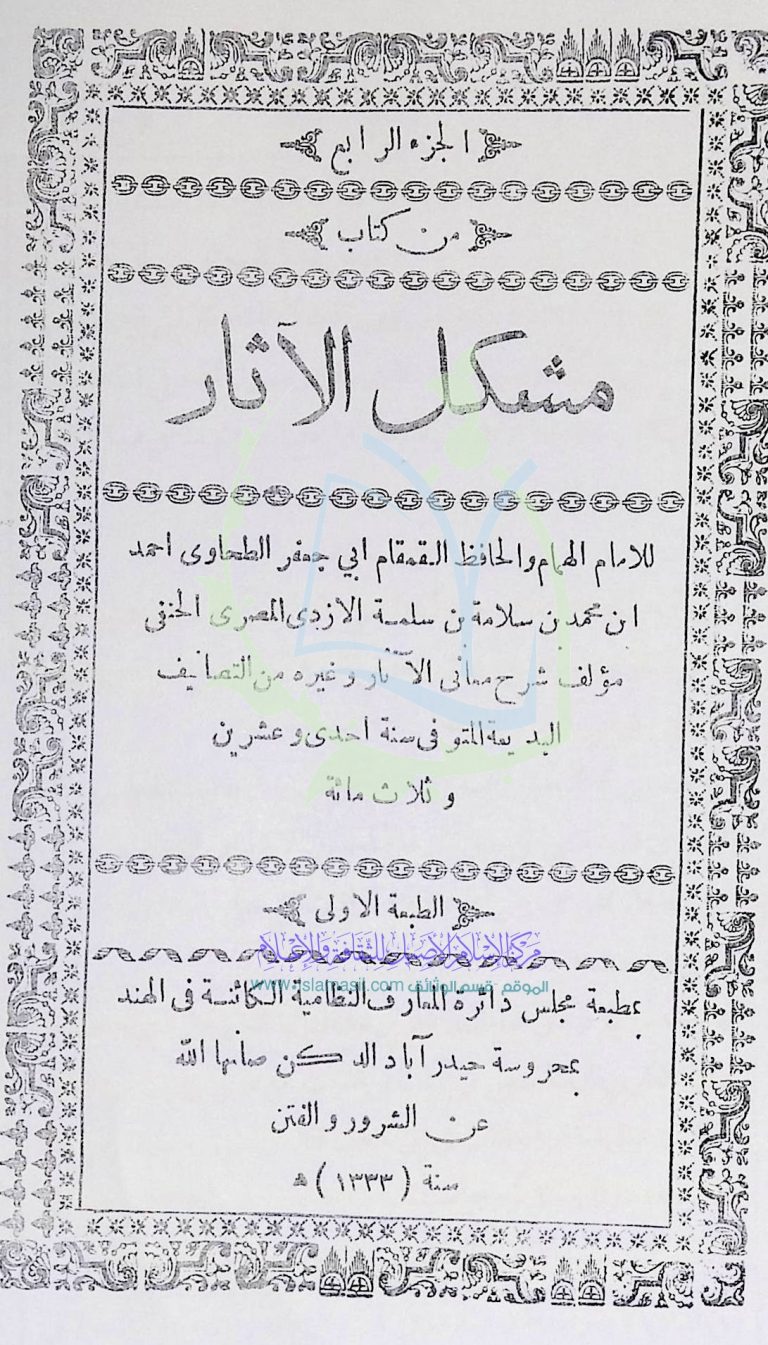 الجزء الرابع
من كتاب
مشكل الآثار
للامام الهمام والحافظ القمقام ابي جعفر الطحاوى احمد
ابن محمد بن سلامة بن سلمة الازدى المصرى الحنفى
مؤلف شرح معانى الآثار وغيره من التصانيف
البديعة المتوفى سنة احدى وعشرين
وثلاث مائة
الطبعة الاولى
مركز الإسلام الأصيل للثقافة والإعلام
الموقع قسم الوثائق www.islamasil.com
بمطبعة مجلس دائرة المعارف النظامية الكائنة فى الهند
بمحروسة حيدر آباد الدكن صانها الله
عن الشرور والفتن
سنة (١٣٣٣) ه